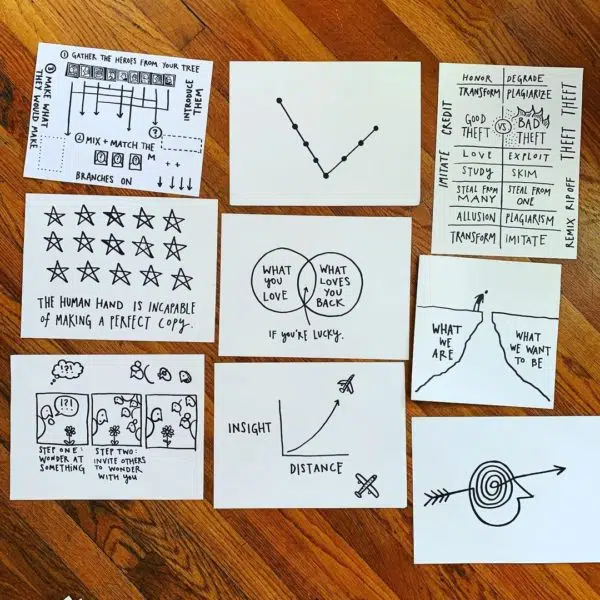 ① GATHER THE HEROES FROM YOUR TREE
INTRODUCE
THEM
?
② MIX + MATCH THE M
BRANCHES ON
③ MAKE WHAT
THEY WOULD MAKE
HONOR DEGRADE
TRANSFORM PLAGIARIZE
GOOD THEFT VS BAD THEFT
LOVE EXPLOIT
STUDY SKIM
STEAL FROM MANY STEAL FROM ONE
ALLUSION PLAGIARISM
TRANSFORM IMITATE
IMITATE CREDIT
REMIX RIP OFF THEFT THEFT
THE HUMAN HAND IS INCAPABLE
of MAKING A PERFECT COPY.
WHAT
YOU
LOVE
WHAT
LOVES
YOU
BACK
IF YOU'RE LUCKY.
WHAT
WE
ARE
WHAT
WE WANT
TO BE
!?!
!?!
STEP ONE:
WONDER AT
SOMETHING
STEP TWO:
INVITE OTHERS
TO WONDER
WITH YOU
INSIGHT
DISTANCE